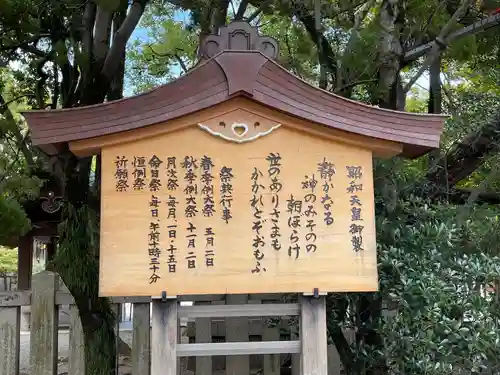 昭和天皇御製
静かなる
神のみそのの
朝ぼらけ
世のありさまも
かかれとぞおもふ
祭典行事
春季例大祭 五月二日
秋季例大祭 十一月二日
月次祭 毎月一日・十五日
命日祭 毎日 午前十時三十分
恒例祭
祈願祭